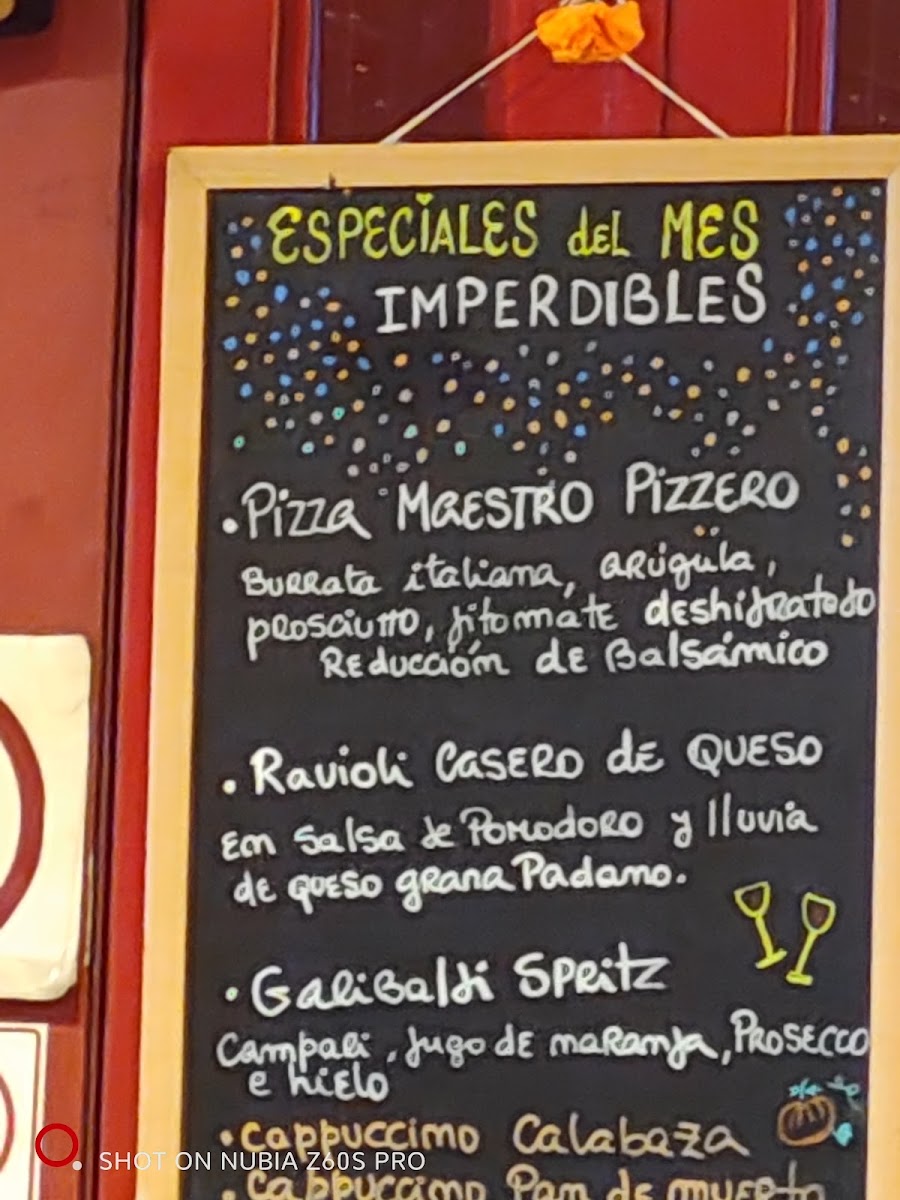 ESPECiALES dEL MES
IMPERDIBLES
• Pizza MAESTRO PiZZERO
Burrata italiana, arúgula,
prosciutto, jitomate deshidratado
Reducción de Balsámico
• Ravioli CASERO de QUESO
En salsa de Pomodoro y lluvia
de queso grana Padano.
• Garibaldi Spritz
Campari, jugo de naranja, Prosecco
e hielo
• cappuccino Calabaza
• Cappuccino Pan de muerto
SHOT ON NUBIA Z60S PRO